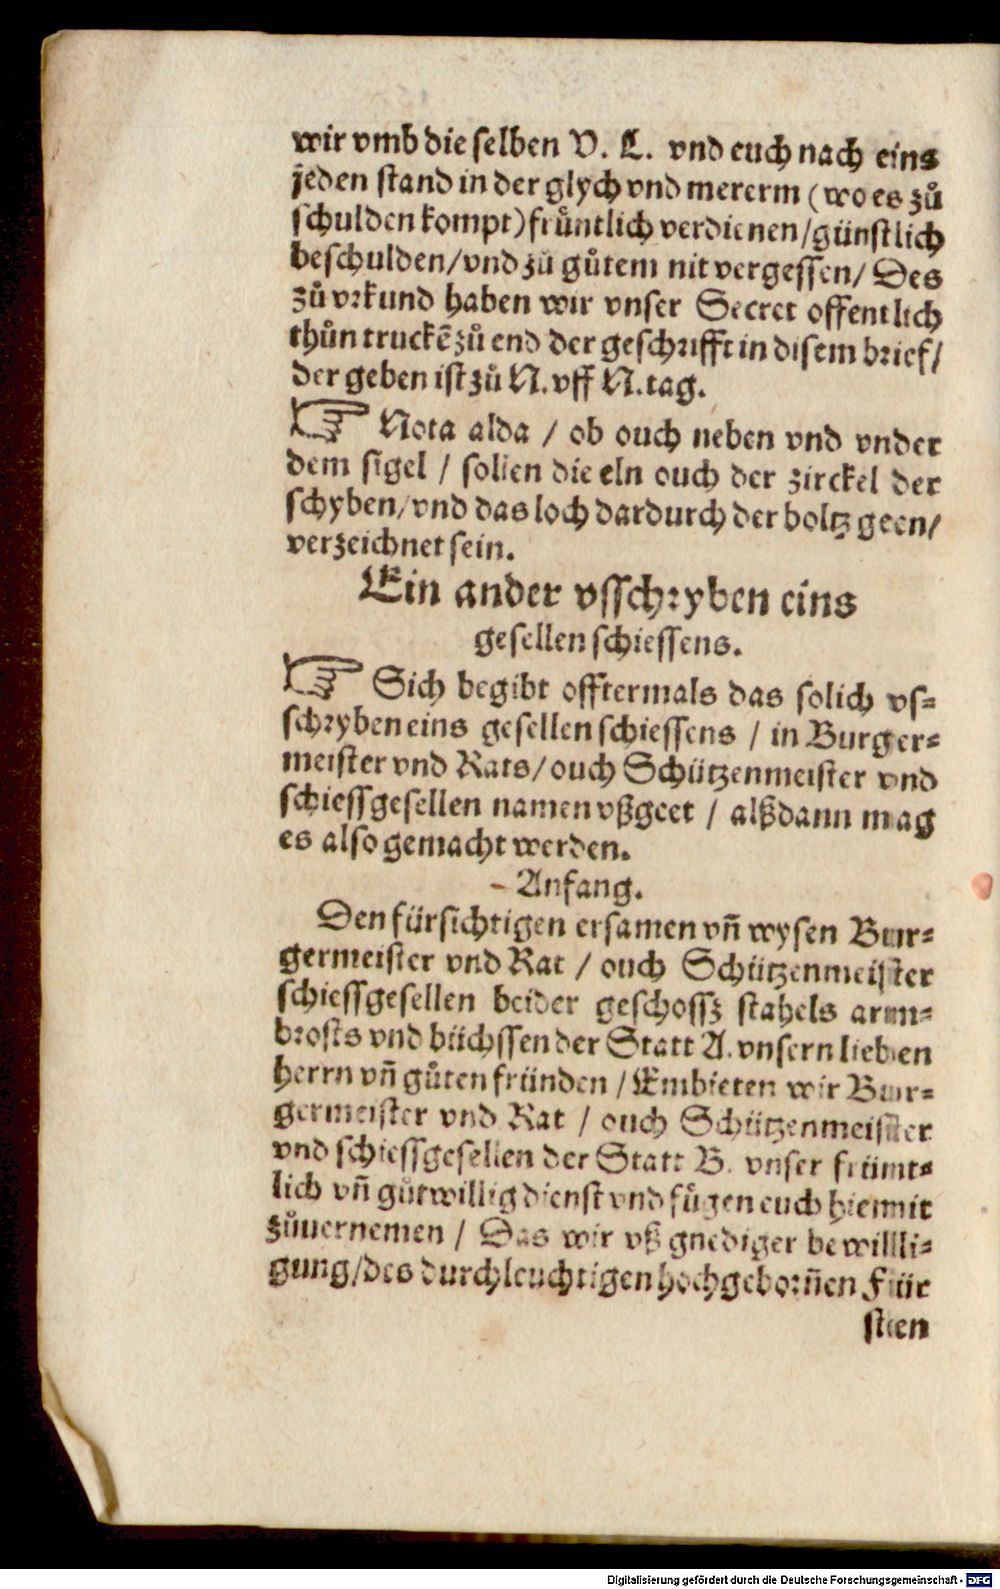 wir vmb die selben V. L. vnd euch nach eins
jeden stand in der glych vnd mererm (wo es zů
schulden kompt) frůntlich verdienen / günstlich
beschulden / vnd zů gůtem nit vergessen / Des
zů vrkund haben wir vnser Secret offentlich
thůn truckẽ zů end der geschrifft in disem brief /
der geben ist zů N. vff N. tag.
☞ Nota alda / ob ouch neben vnd vnder
dem sigel / sollen die eln ouch der zirckel der
schyben / vnd das loch dardurch der boltz geen /
verzeichnet sein.
Ein ander vsschryben eins
gesellen schiessens.
☞ Sich begibt offtermals das solich vs⸗
schryben eins gesellen schiessens / in Burger⸗
meister vnd Rats / ouch Schützenmeister vnd
schiessgesellen namen vßgeet / alßdann mag
es also gemacht werden.
Anfang.
Den fürsichtigen ersamen vñ wysen Bur⸗
germeister vnd Rat / ouch Schützenmeister
schiessgesellen beider geschossz stahels arm⸗
brosts vnd büchssen der Statt A. vnsern lieben
herrn vñ gůten fründen / Embieten wir Bur⸗
germeister vnd Rat / ouch Schützenmeister
vnd schiessgesellen der Statt B. vnser früint⸗
lich vñ gůtwillig dienst vnd fůgen euch hiemit
zůuernemen / Das wir vß gnediger bewilli⸗
gung / des durchleuchtigen hochgebornẽn Für
sten
Digitalisierung gefördert durch die Deutsche Forschungsgemeinschaft - DFG